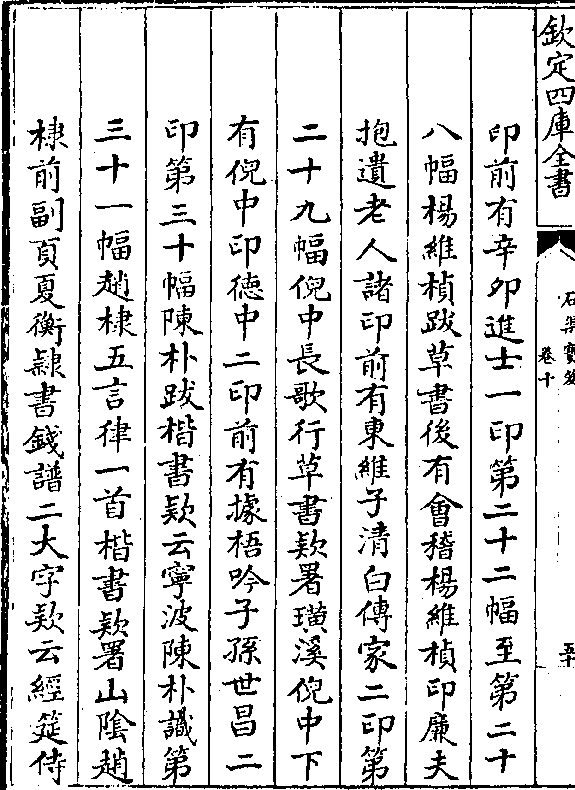 欽定四庫全書
石渠寶笈
卷十
五十
印前有辛卯進士一印第二十二幅至第二十
八幅楊維楨跋草書後有會稽楊維楨印廉夫
抱遺老人諸印前有東維子清白傳家二印第
二十九幅倪中長歌行草書欵署璜溪倪中下
有倪中印徳中二印前有據梧吟子孫世昌二
印第三十幅陳朴跋楷書欵云寧波陳朴識第
三十一幅趙棣五言律一首楷書欵署山陰趙
棣前副頁夏衡隷書錢譜二大字欵云經筵侍